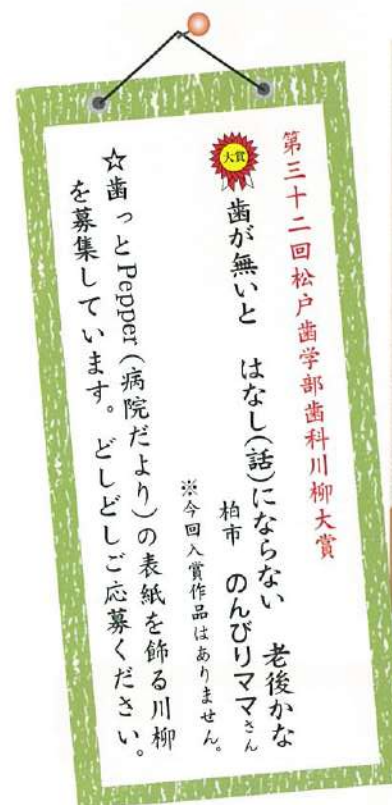 第三十二回松戸歯学部歯科川柳大賞
大賞
歯が無いと　はなし(話)にならない　老後かな
柏市　のんびりママさん
※今回入賞作品はありません。
☆歯っとPepper(病院だより)の表紙を飾る川柳
を募集しています。どしどしご応募ください。